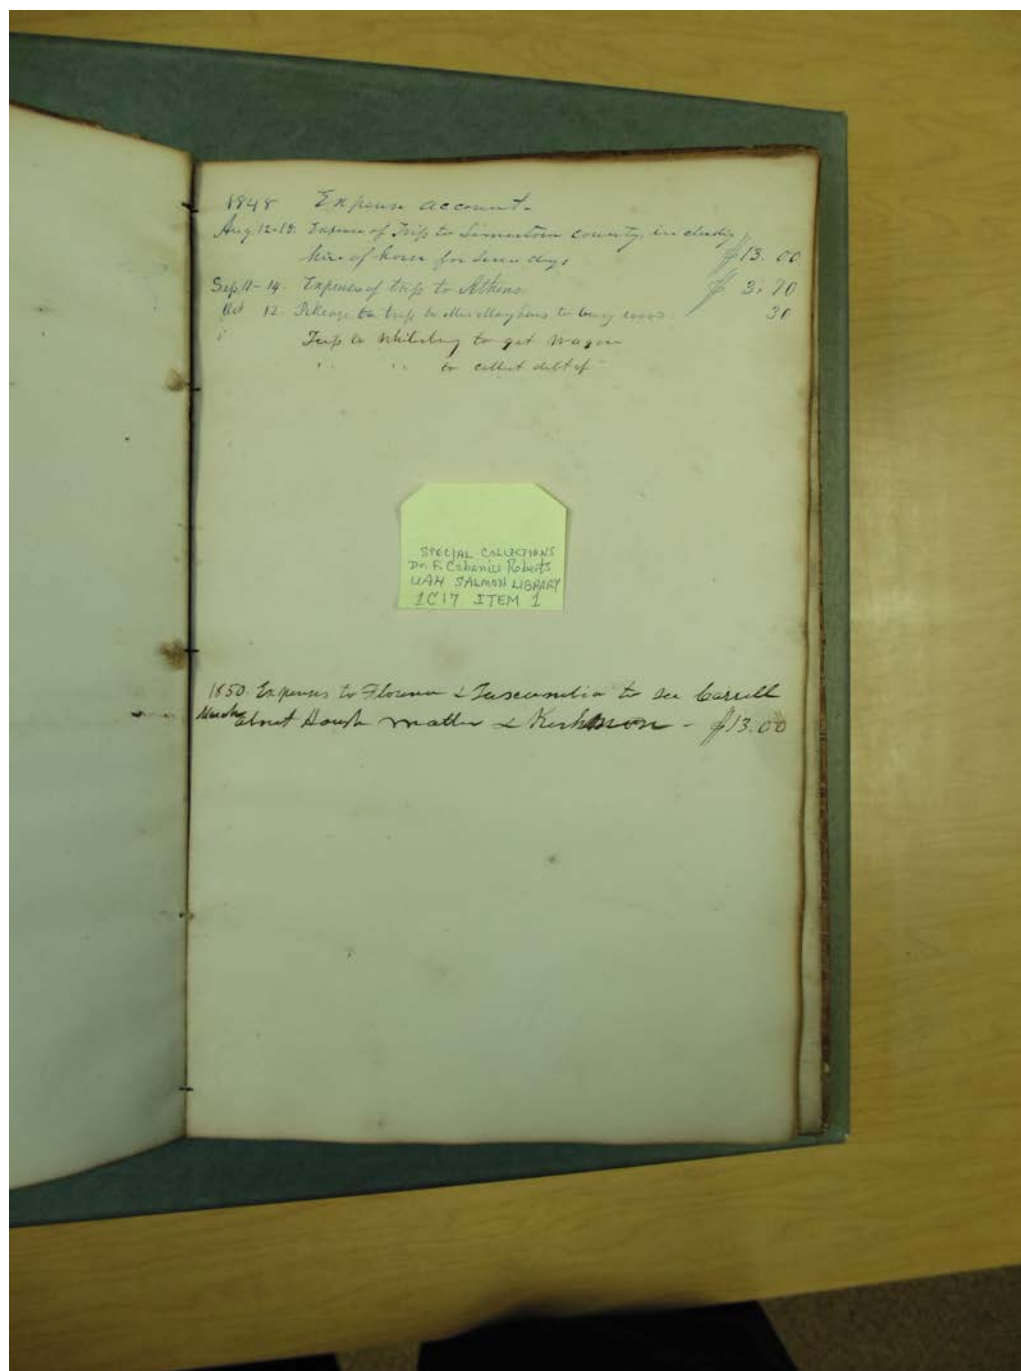 1848 Expense account.
Aug 12-18. Expense of Trip to Limestone county, including
hire of horse for seven days $13.00
Sep 11-14. Expenses of trip to Athens $3.70
Oct 12. trip to 30
Trip to Whitesburg to get Wagon
" " to collect debt of
SPECIAL COLLECTIONS
Dr. F. Cabaniss Roberts
UAH SALMON LIBRARY
1C17 ITEM 1
1850. Expenses to Florence & Tuscumbia to see Carroll
March about Hough matter & Kirkman - $13.00